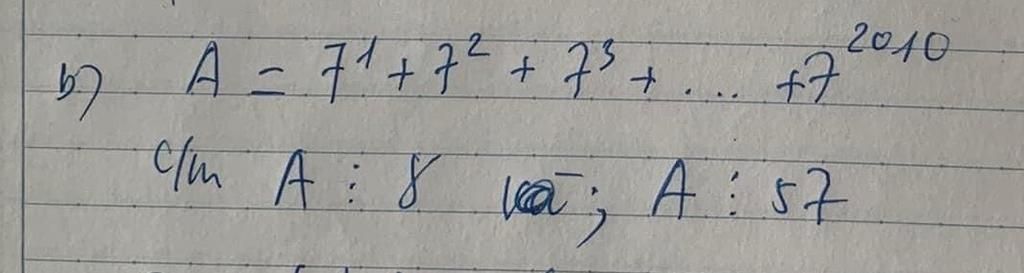 b) A = 7¹ + 7² + 7³ + ... + 7²⁰¹⁰
c/m A ⋮ 8 và ; A ⋮ 57